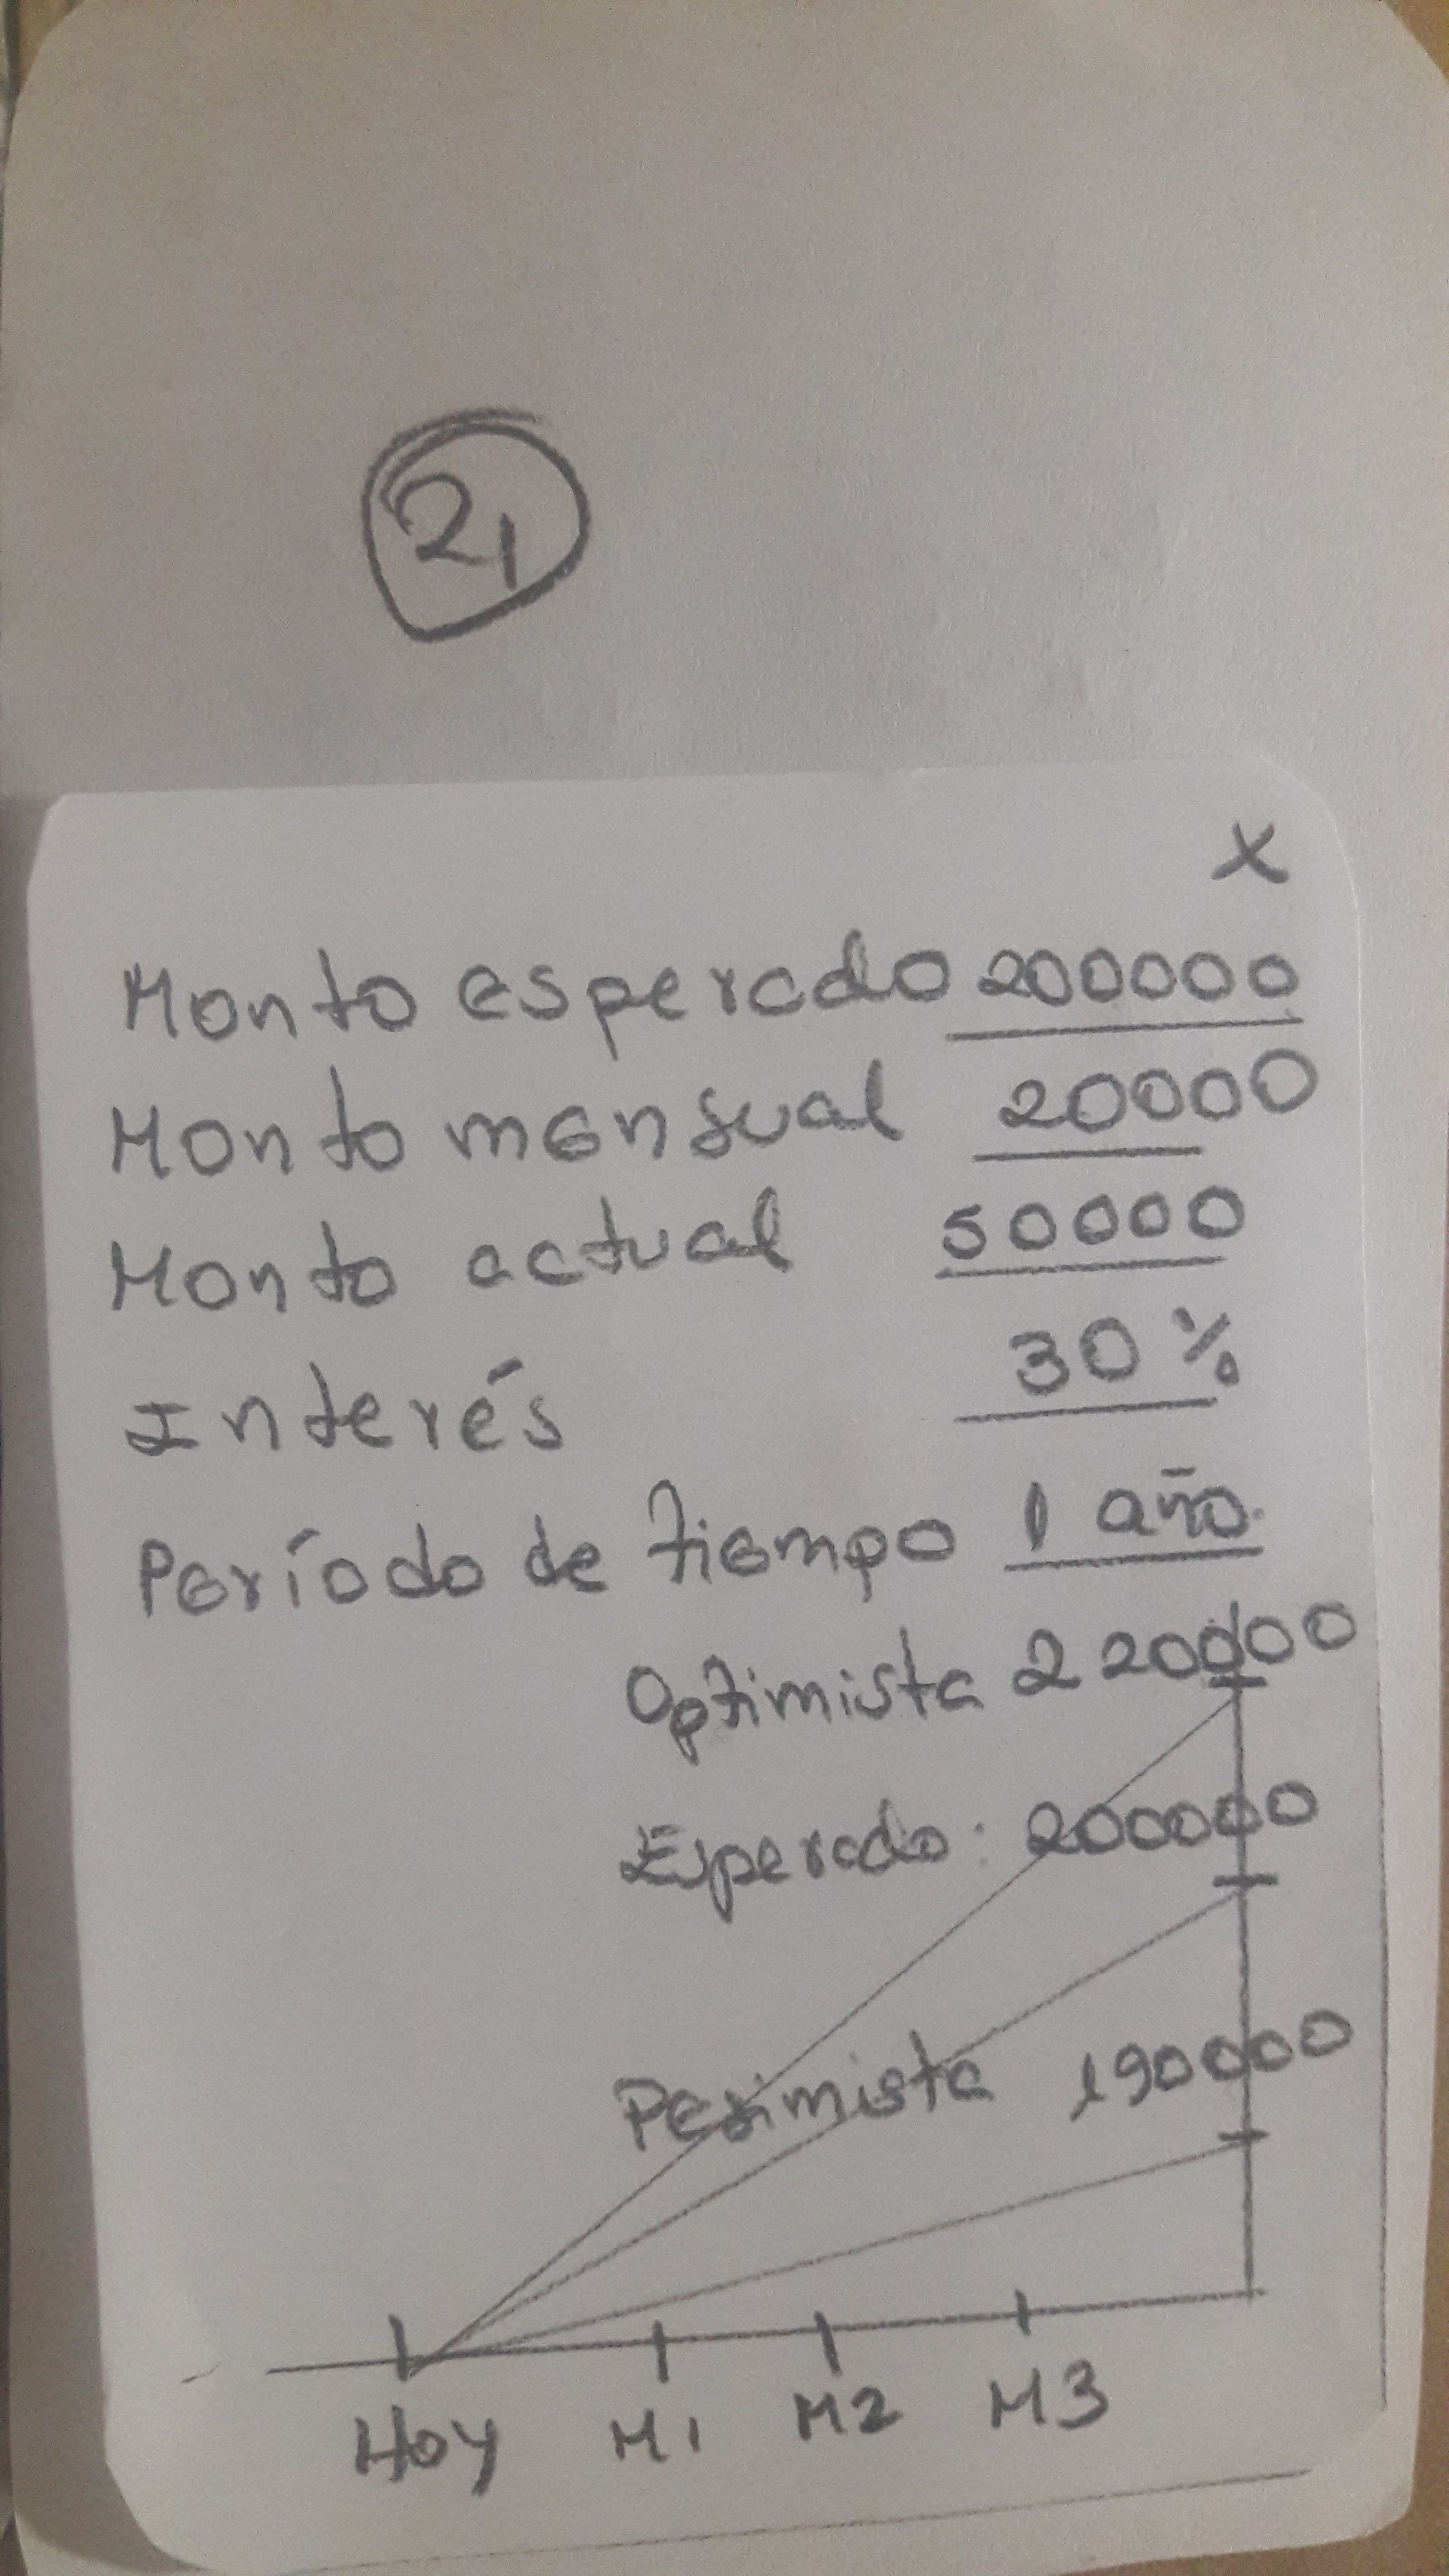 21
X
Monto esperado 200000
Monto mensual 20000
Monto actual 50000
Interés 30%
Período de tiempo 1 año.
Optimista 220000
Esperado: 200000
Pesimista 190000
Hoy M1 M2 M3